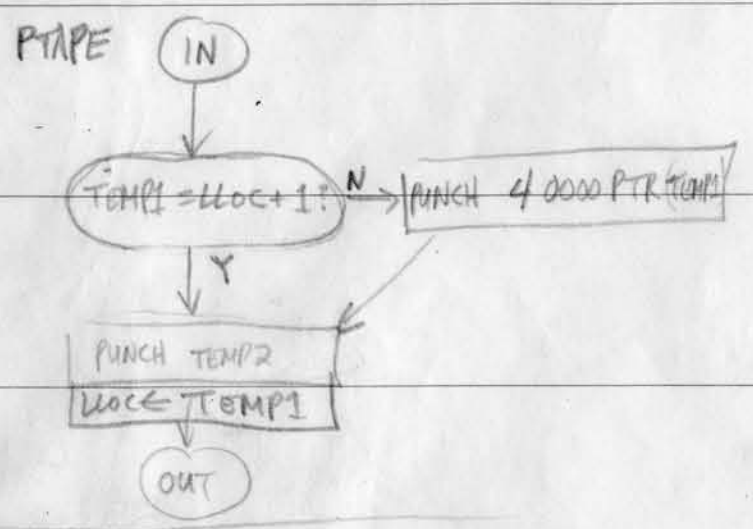 PTAPE
IN
TEMP1 = LLOC + 1?
N
PUNCH 4 0000 PTR (TEMP1)
Y
PUNCH TEMP2
LLOC ← TEMP1
OUT